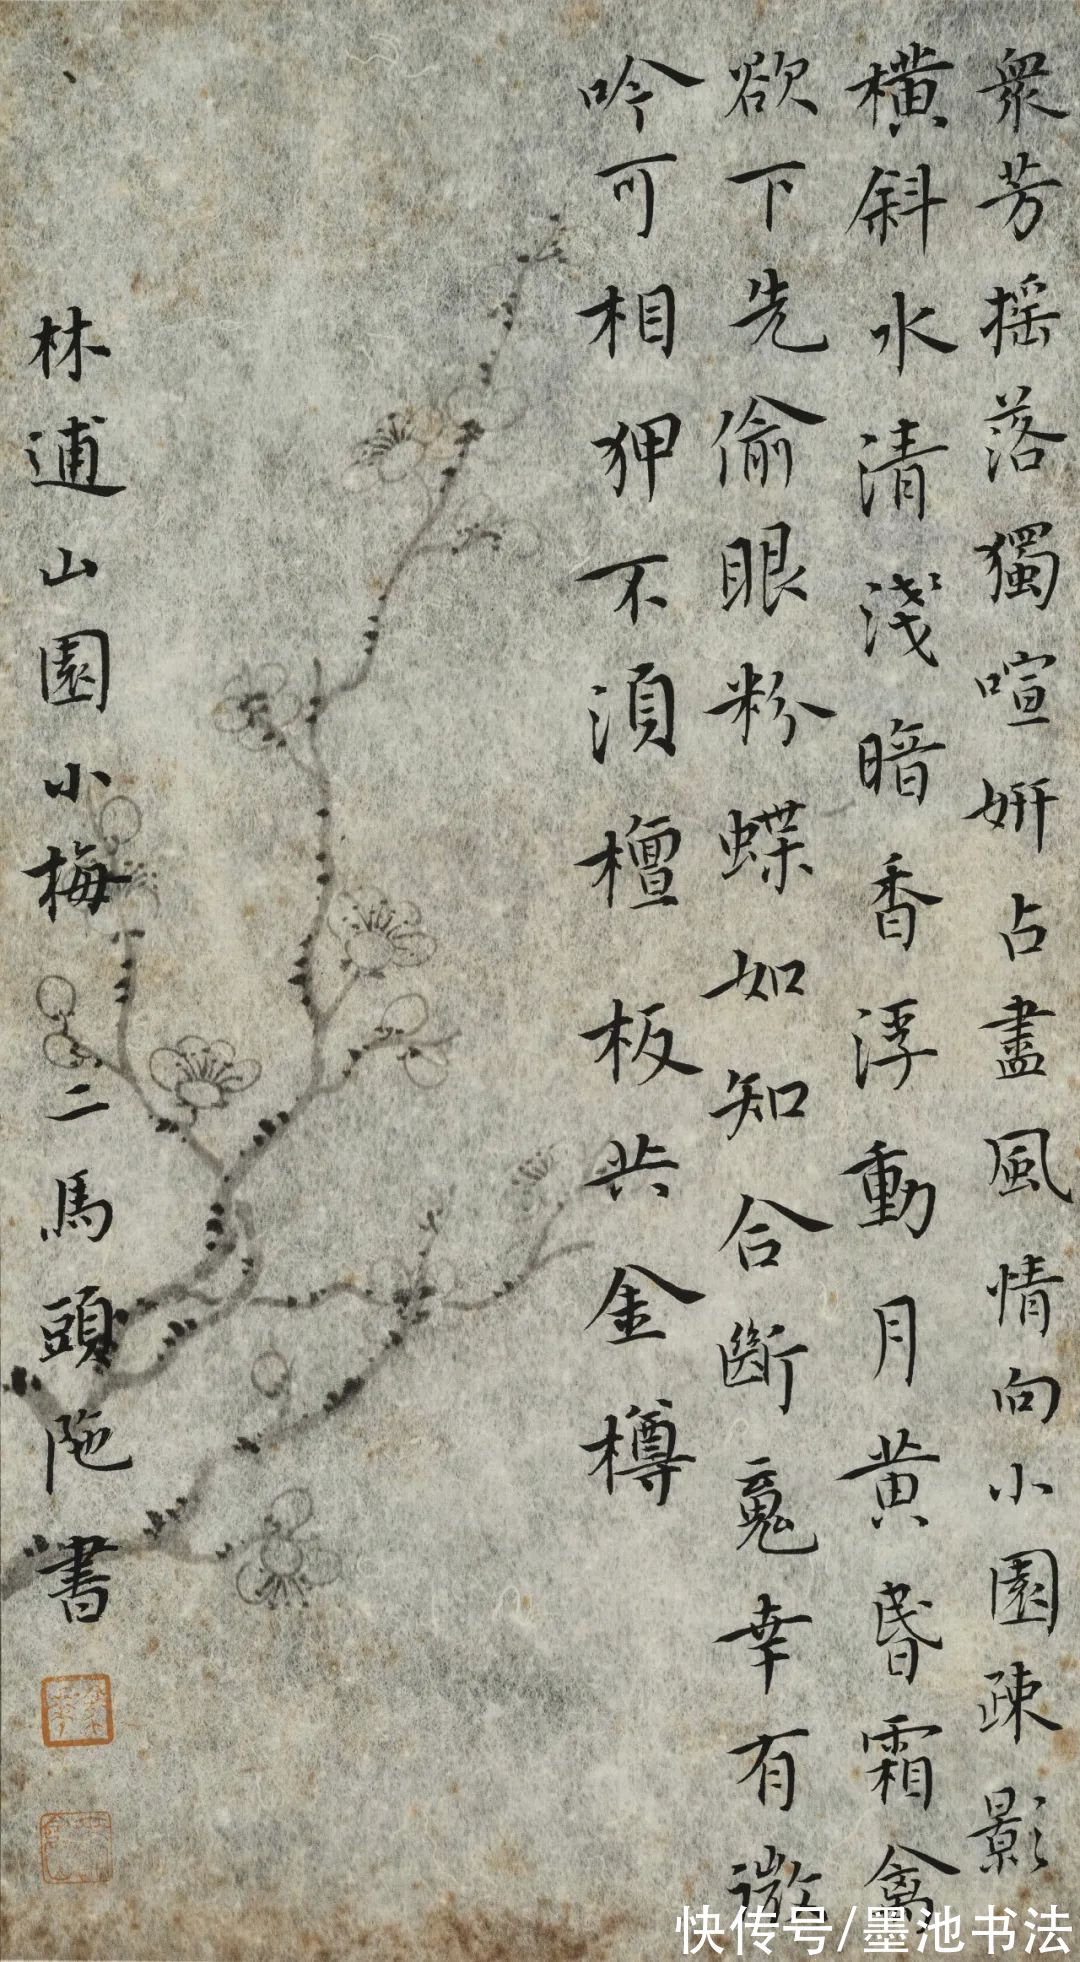 衆芳揺落獨喧妍占盡風情向小園疎影
橫斜水清淺暗香浮動月黄昏霜禽
欲下先偷眼粉蝶如知合斷魂幸有微
吟可相狎不須檀板共金樽
林逋山園小梅二馬頭陁書
快传号/墨池书法